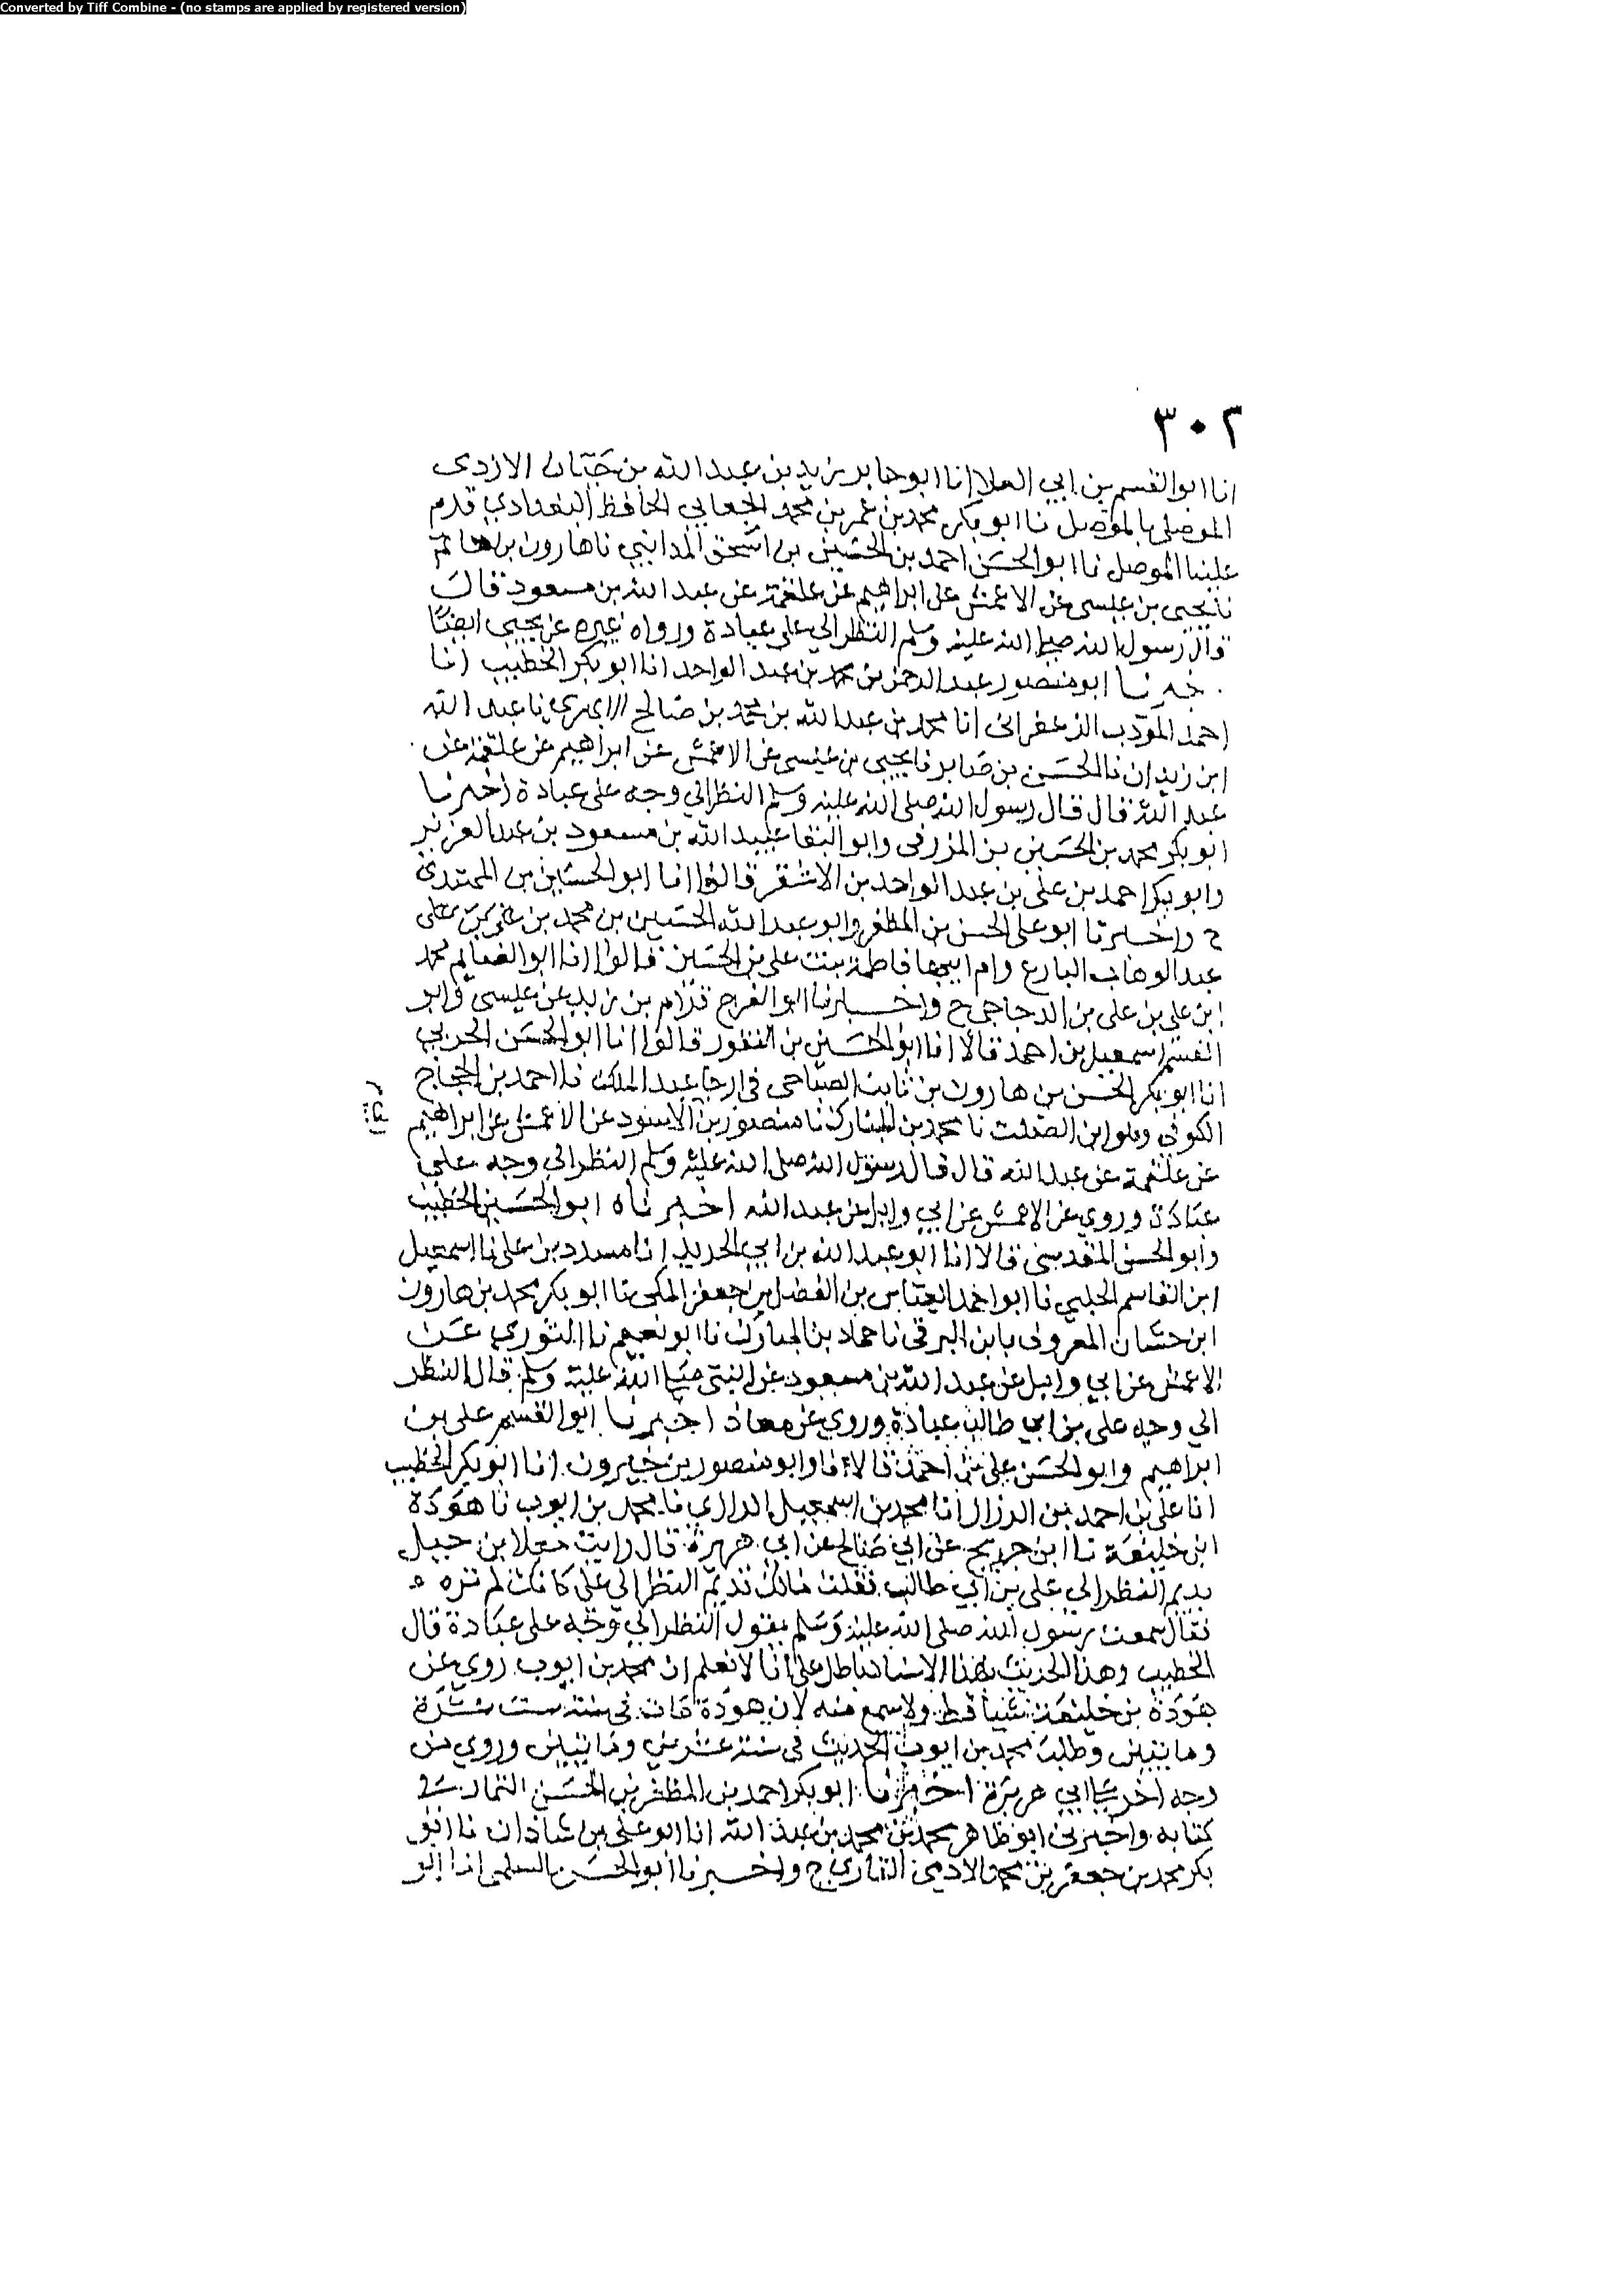 Converted by Tiff Combine - (no stamps are applied by registered version)
٣٠٢
انا ابو القسم بن ابي العلا انا ابو جابر زيد بن عبد الله بن حبان الازدي
الموصلي بالموصل نا ابو بكر محمد بن عمر بن محمد الجعابي الحافظ البغدادي قدم
علينا الموصل نا ابو الحسن احمد بن الحسين بن اسحق المدايني نا هارون بن حاتم
نا يحيى بن عيسى عن الاعمش عن ابراهيم عن علقمة عن عبد الله بن مسعود قال
قال رسول الله صلى الله عليه وسلم النظر الي علي عبادة ورواه غيره عن يحيى ايضا
خبرنا ابو منصور عبد الرحمن بن محمد بن عبد الواحد انا ابو بكر الخطيب انا
احمد المودب الزعفراني انا محمد بن عبد الله بن محمد بن صالح الابهري نا عبد الله
ابن زيدان نا الحسن بن صابر نا يحيى بن عيسى عن الاعمش عن ابراهيم عن علقمة عن
عبد الله قال قال رسول الله صلى الله عليه وسلم النظر الي وجه علي عبادة اخبرنا
ابو بكر محمد بن الحسين بن المزرفي وابو البقا عبيد الله بن مسعود بن عبد العزيز
وابو بكر احمد بن علي بن عبد الواحد بن الاشقر قالوا انا ابو الحسين بن المهتدي
ح واخبرنا ابو علي الحسن بن المظفر وابو عبد الله الحسين بن محمد بن
عبد الوهاب البارع وام ابيها فاطمة بنت علي بن الحسين قالوا انا ابو الغنايم محمد
ابن علي بن علي بن الدجاجي ح واخبرنا ابو الفرج قوام بن زيد بن عيسى وابو
القسم اسمعيل بن احمد قالا انا ابو الحسين بن النقور قالوا انا ابو الحسن الحربي
انا ابو بكر الحسن بن هارون بن ثابت الصباحي في عبد الملك نا احمد بن الحجاج
الكوفي وهو ابن الصلت نا محمد بن المبارك نا منصور بن الاسود عن الاعمش عن ابراهيم
عن علقمة عن عبد الله قال قال رسول الله صلى الله عليه وسلم النظر الي وجه علي
عبادة وروي عن الاعمش عن ابي وايل عن عبد الله اخبرناه ابو الحسين الخطيب
وابو الحسن المقدسي قالا انا ابو عبد الله بن ابي الحديد انا مسدد بن علي نا اسمعيل
ابن القاسم الحلبي نا ابو احمد العباس بن الفضل بن جعفر المكي نا ابو بكر محمد بن هارون
ابن حسان المعروف بابن البرقي نا حماد بن المبارك نا ابو نعيم نا الثوري عن
الاعمش عن ابي وايل عن عبد الله بن مسعود عن النبي صلى الله عليه وسلم قال النظر
الي وجه علي بن ابي طالب عبادة وروي عن معاذ اخبرنا ابو القسم علي بن
ابراهيم وابو الحسن علي بن احمد قالا نا وابو منصور بن خيرون انا ابو بكر الخطيب
انا علي بن احمد بن الرزاز انا محمد بن اسمعيل الرازي نا محمد بن ايوب نا هوذة
ابن خليفة نا ابن جريج عن ابي صالح عن ابي هريرة قال رايت معاذ بن جبل
يديم النظر الي علي بن ابي طالب فقلت مالك تديم النظر الي علي كانك لم تره
فقال سمعت رسول الله صلى الله عليه وسلم يقول النظر الي وجه علي عبادة قال
الخطيب وهذا الحديث بهذا الاسناد باطل علي انا لا نعلم ان محمد بن ايوب روي عن
هوذة بن خليفة شيأ قط ولا سمع منه لان هوذة مات في سنة ست عشرة
ومايتين وطلب محمد بن ايوب الحديث في سنة عشرين ومايتين وروي من
وجه اخر عن ابي هريرة اخبرنا ابو بكر احمد بن المظفر بن الحسن التمار في
كتابه واخبرني ابو طاهر محمد بن محمد بن عبد الله انا ابو علي بن شاذان نا ابو
بكر محمد بن جعفر بن محمد الادمي القاري ح واخبرنا ابو الحسن السلمي انا ابو